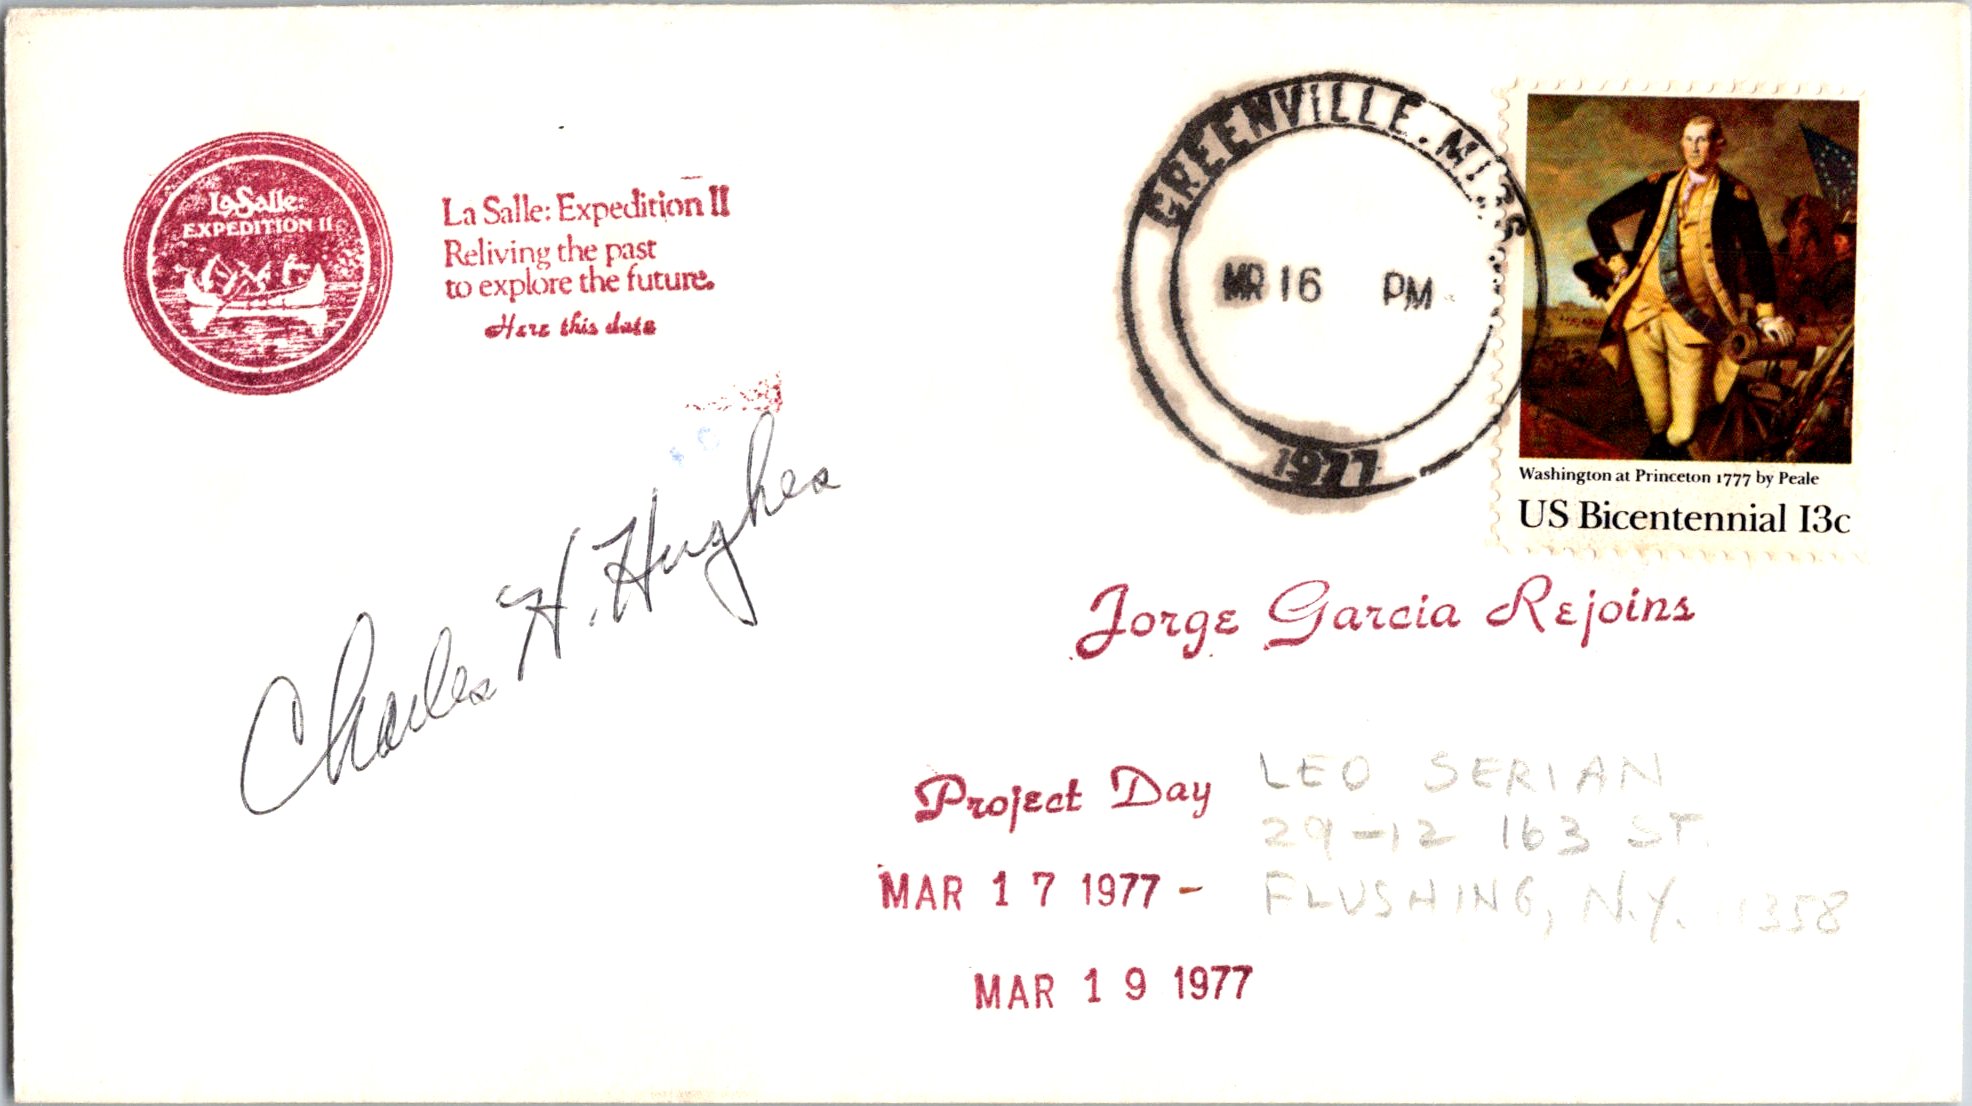 LaSalle:
EXPEDITION II
La Salle: Expedition II
Reliving the past
to explore the future.
Here this date
GREENVILLE, MISS
MR 16 PM
1977
Washington at Princeton 1777 by Peale
US Bicentennial 13c
Charles H. Hughes
Jorge Garcia Rejoins
Project Day
MAR 17 1977 -
MAR 19 1977
LEO SERIAN
29-12 163 ST.
FLUSHING, N.Y. 11358